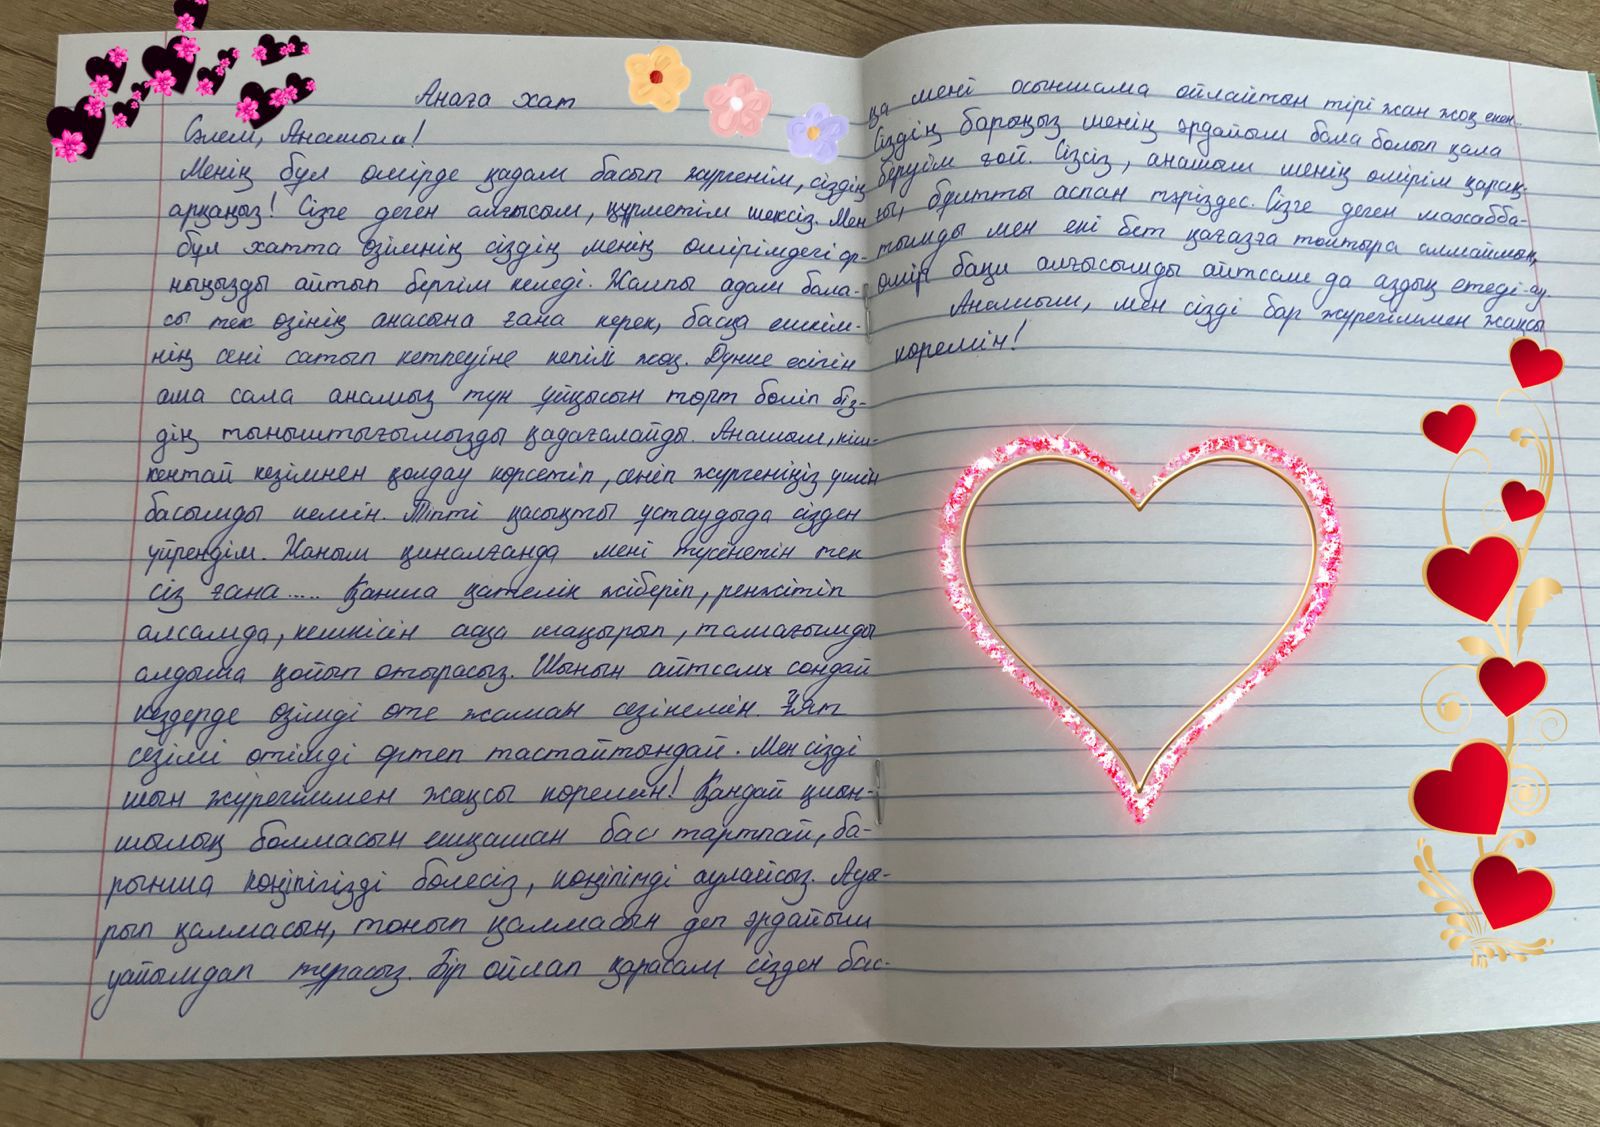 Анаға хат
Сәлем, Анашым!
Менің бұл өмірде қадам басып жүргенім, сіздің
арқаңыз! Сізге деген алғысым, құрметім шексіз. Мен
бұл хатта өзімнің сіздің менің өмірімдегі ор-
ныңызды айтып бергім келеді. Жалпы адам бала-
сы тек өзінің анасына ғана керек, басқа ешкім-
нің сені сатып кетпеуіне кепіл жоқ. Дүние есігін
аша сала анамыз түн ұйқысын төрт бөліп біз-
дің тыныштығымызды қадағалайды. Анашым, кіш-
кентай кезімнен қолдау көрсетіп, сеніп жүргеніңіз үшін
басымды иемін. Тіпті қасықты ұстаудыда сізден
үйрендім. Жаным қиналғанда мені түсінетін тек
сіз ғана..... Қанша қателік жіберіп, ренжітіп
алсамда, кешкісін асқа шақырып, тамағымды
алдыма қойып отырасыз. Шынын айтсам сондай
кездерде өзімді өте жаман сезінемін. Ұят
сезімі өтімді өртеп тастайтындай. Мен сізді
шын жүрегіммен жақсы көремін! Қандай қиын-
шылық болмасын ешқашан бас тартпай, ба-
рынша көңілігізді бөлесіз, көңілімді аулайсыз. Ауы-
рып қалмасын, тоңып қалмасын деп әрдайым
уайымдап тұрасыз. Бір ойлап қарасам сізден бас-
қа мені осыншама ойлайтын тірі жан жоқ екен..
Сіздің барыңыз менің әрдайым бала болып қала
беруім ғой. Сізсіз, анашым менің өмірім қараң-
ғы, бұлтты аспан тәріздес. Сізге деген махабба-
тымды мен екі бет қағазға толтыра алмаймын,
өмір бақи алғысымды айтсам да аздық етеді-ау.
Анашым, мен сізді бар жүрегіммен жақсы
көремін!